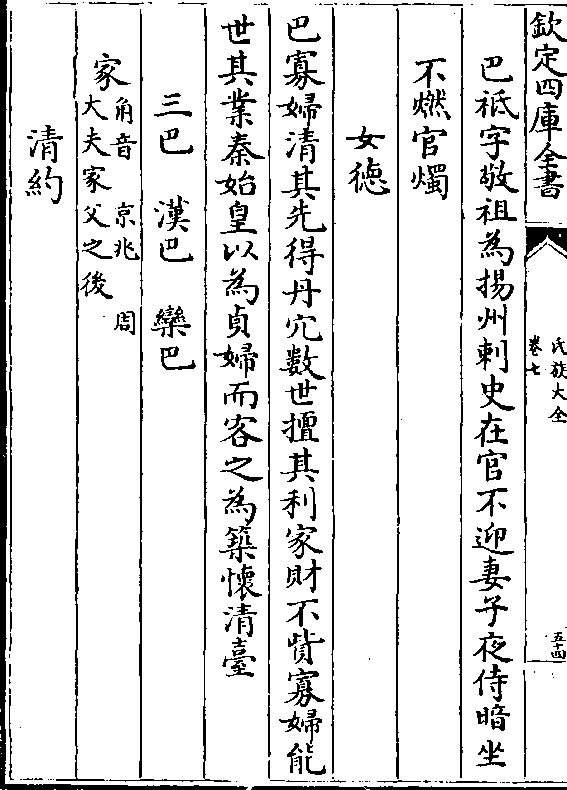 欽定四庫全書
氏族大全
卷七
五十四
巴祇字敬祖為揚州刺史在官不迎妻子夜侍暗坐
不燃官燭
女德
巴寡婦清其先得丹穴數世擅其利家財不貲寡婦能
世其業秦始皇以為貞婦而客之為築懷清臺
三巴 漢巴 欒巴
家角音 京兆 周
大夫家父之後
清約